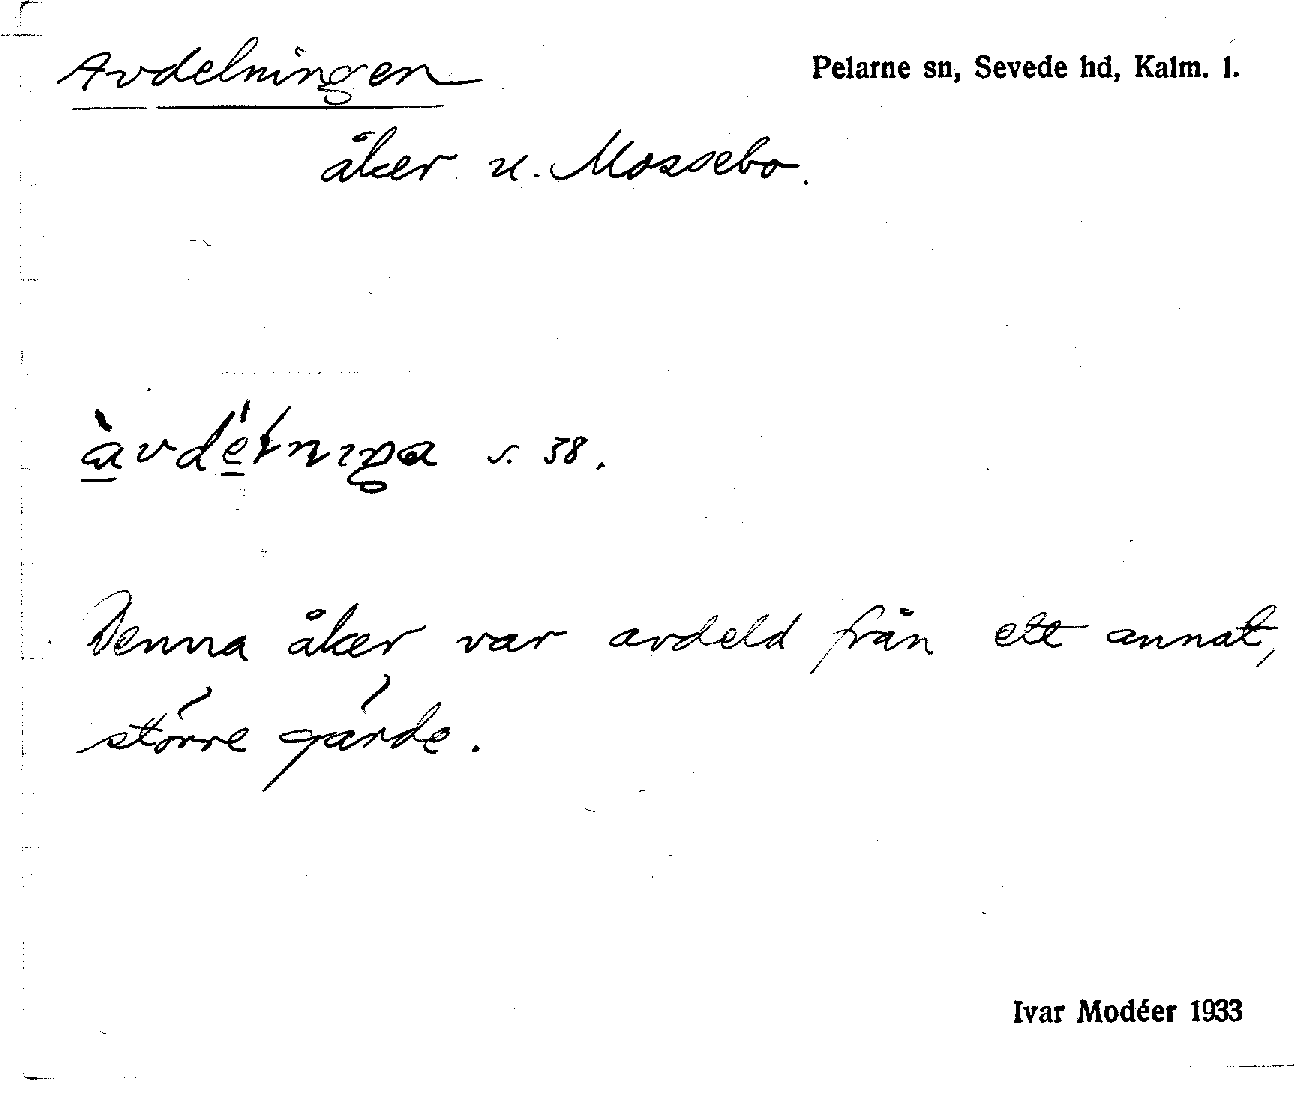 Avdelningen
Pelarne sn, Sevede hd, Kalm. l.
åker u. Mossebo.
s. 38.
Denna åker var avdeld från ett annat,
större gärde.
Ivar Modéer 1933